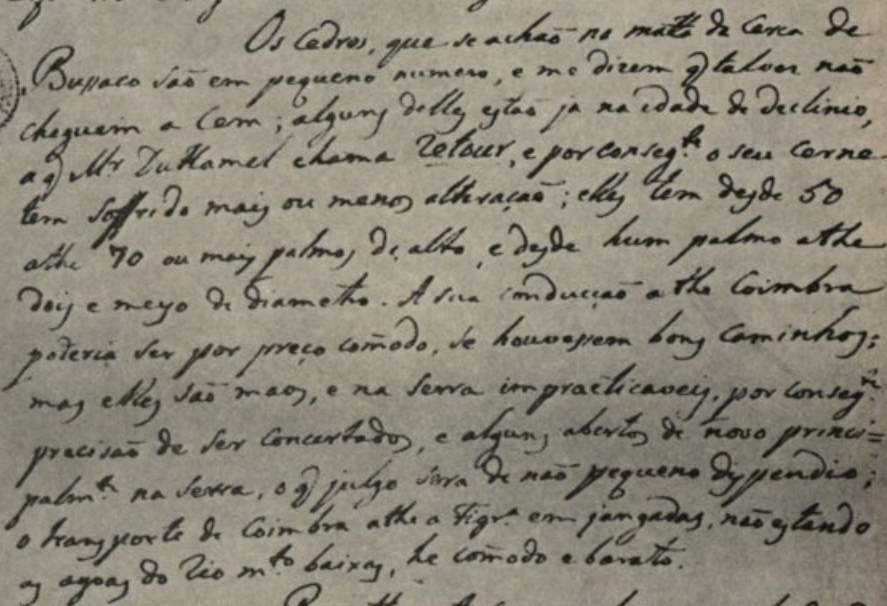 Os Cedros, que se achaõ na matta da Cerca de
Bussaco saõ em pequeno numero, e me dizem q̃ talvez naõ
cheguem a Cem; alguns delles estaõ ja na idade de declinio,
a q̃ Mr DuHamel chama Retour, e por conseg.te o seu Cerne
tem soffrido mais ou menos alteraçaõ; elles tem desde 50
athe 70 ou mais palmos de alto, e desde hum palmo athe
dois e meyo de diametro. A sua conducçaõ athe Coimbra
poderia ser por preço com̃odo, se houvessem bons Caminhos;
mas elles saõ maos, e na Serra impracticaveis, por conseg.te
precisaõ de ser Concertados, e alguns abertos de novo princi=
palm.te na Serra, o q̃ julgo sera de naõ pequeno dispendio;
o transporte de Coimbra athe a Figr.a em jangadas, naõ estando
as agoas do Rio m.to baixas, he com̃odo e barato.